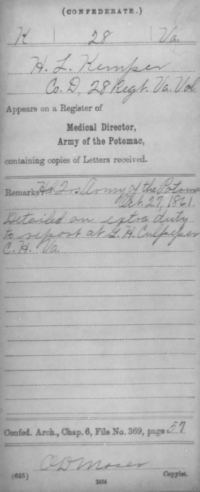 (CONFEDERATE.)
K 28 Va.
H. L. Kemper
Co. D, 28 Regt. Va. Vol.
Appears on a Register of
Medical Director,
Army of the Potomac,
containing copies of Letters received.
Remarks: Hd Qrs Army of the Potomac
Oct. 27, 1861.
Detailed on extra duty
to report at G. H. Culpeper
C. H. Va.
Confed. Arch., Chap. 6, File No. 369, page 57
(635) C D Moser
Copyist.